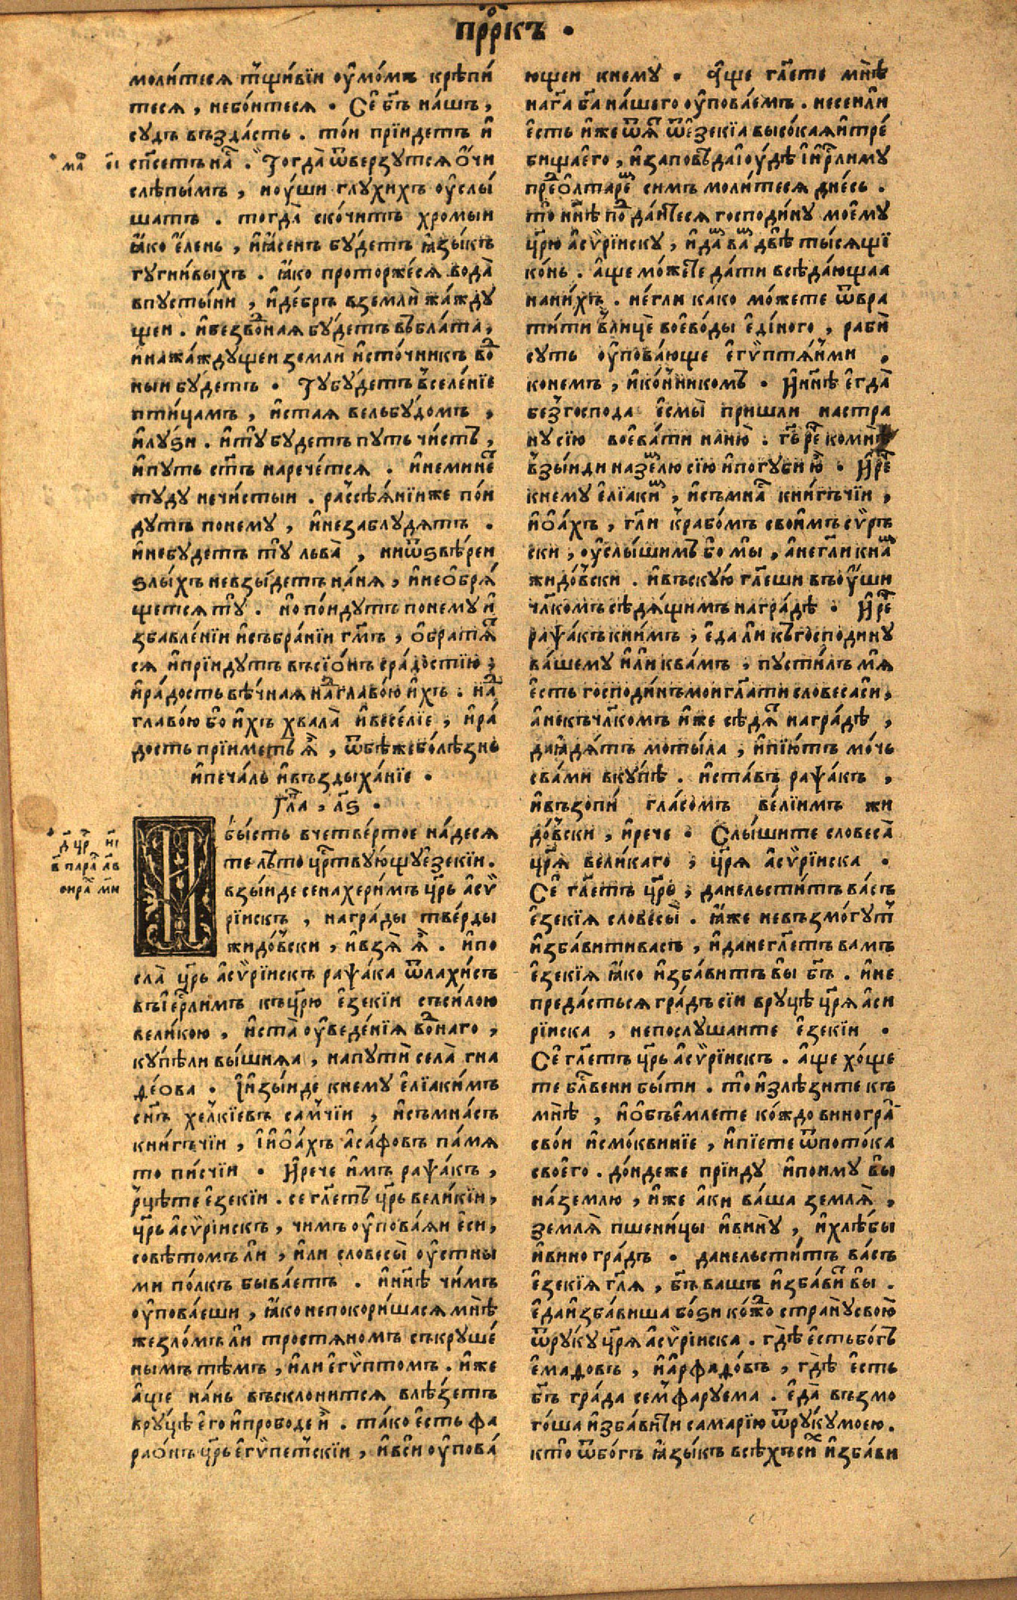 прⷪ҇ркъ .
моли́теся тщи́вїи ᲂу҆мо́мъ крѣпи́
теся , небо́итеся . Се̑ бг҃ъ на́шъ ,
су́дъ възда́сть . то́и прїи́детъ и҆
сп҃сетъ на́съ . Тогда̀ ѿверзутся ѻ҆́чи
слѣпы́мъ , и оу́ши глухи́хъ ᲂу҆слы́
шатъ . тогда̀ ско́читъ хромыи
ꙗ҆́ко е҆́лень , и҆ ꙗ҆́сенъ бу́детъ ꙗ҆зы́къ
гугни́выхъ . ꙗ҆́ко проторже́ся вода̀
впусты́ни , и҆ де́брь вземлѝ жа́жду
щеи . и҆ безво́днаѧ бу́детъ въбла́та ,
и҆ нажа́ждущеи землѝ и҆сто́чникъ во́д
ныи бу́детъ . Ту бу́детъ вселе́нїе
пти́цамъ , и҆ стаѧ вельбу́домъ ,
и҆ лу́ѕи . и҆ ту̀ бу́детъ пу́ть чи́стъ ,
и҆ пу́ть ст҃ъ нарече́тся . и҆ неминѐт
туду нечи́стыи . расѣѧнїи же по́и
ду́тъ понему , и҆ незаблу́дятъ .
и҆ небу́детъ ту̀ льва̀ , ни ѿ ѕвѣ́реи
ѕлы́хъ невзы́детъ на́нь , и҆ неѻ҆бря́
щется ту̀ . но по́иду́тъ понему и҆
збавле́нїи и҆ събра́нїи гм҃ъ , ѻ҆братя́т
ся и҆ прїи́ду́тъ въсїѻ́нъ срадостїю ,
и҆ ра́дость вѣ́чная надглаво́ю и҆́хъ . над
главо́ю бо и҆́хъ хвала̀ и҆ весе́лїе , и҆ ра́
дость прїи́метъ ѧ҆̀ , ѿбѣже болѣ́знь
и҆ печа́ль и҆ въздыха́нїе .
Гла̑ , л҃ѕ .
И бы́сть вчетве́ртое на́деся
те лѣ́то црⷭ҇твующу е҆зекїи .
взы́иде сенахери́мъ цр҃ь а҆сѷ
рїискъ , награ́ды тве́рды
жидо́вски , и҆ взя̀ ѧ҆̀ . и҆ по
сла̀ цр҃ь а҆сѷрїискъ раѱа́ка ѿ лахи́съ
въ і҆ерⷭ҇ли́мъ къ цр҃ю е҆зекїи съси́лою
вели́кою . и҆ ста̀ ᲂу҆веде́нїѧ во́днаго ,
купѣ́ли вы́шняѧ , напути̑ села̀ гна
де́ѻва . И҆зы́иде кнему е҆лїаки́мъ
сн҃ъ хе́лкїевъ са́мчїи , и҆ съмна́съ
кни́гъчїи , і҆ и҆ѻ҆а́хъ а҆са́фовъ па́мя
то пи́счїи . И҆ рече и҆́мъ раѱа́къ ,
рцѣ́те е҆зекїи . се гл҃етъ цр҃ь вели́кїи ,
цр҃ь а҆сѷрїискъ , чи́мъ ᲂу҆пова́ѧи е҆си ,
совѣ́томъ ли , и҆ли словесы̀ ᲂу҆стны
ми по́лкъ быва́етъ . и҆ нн҃ѣ чи́мъ
ᲂу҆пова́еши , ꙗ҆́ко непокори́шася мнѣ̀
жезло́мъ ли тростяномъ съкруше́
нымъ тѣ́мъ , и҆ли е҆гѷ́птомъ . и҆же
а҆ще на́нь въсклони́тся влѣ́зетъ
вруцѣ̀ е҆го и҆ прободе и҆̀ . та́ко е҆сть фа
раѻ́нъ цр҃ь е҆гѷпе́тскїи , и҆ вси ᲂу҆пова́
ющеи кнему . А҆ще гл҃ете мнѣ̀
нагⷭ҇а бг҃а на́шего ᲂу҆пова́емъ . несеи ли
е҆сть и҆́же ѿѧ̀ е҆зекїа высо́каѧ и҆ тре́
бища е҆го , и҆ запове́да і҆оу́дѣ і҆ і҆ерⷭ҇лиму
преⷣ ѻ҆лтаре́мъ си́мъ моли́теся дне́сь .
то нн҃ѣ подда́итеся господи́ну моему
цр҃ю а҆сѷрїиску , и҆ да́мъ ва́мъ двѣ̀ ты́сящи
ко́нь . а҆ще мо́жете да́ти всѣда́ющаа
нани́хъ . не́гли како мо́жете ѿвра
ти́ти влицѐ воево́ды е҆ди́ного , раби̑
су́ть ᲂу҆пова́юще е҆гѷптя́ными
конемъ , и҆ ко́нникомъ . И҆ нн҃ѣ е҆гда̀
без господа е҆смы̀ пришли настра
ну сїю воева́ти на ню̀ . гь҃ рече комнѣ
взы́иди назе́млю сїю и҆ погуби ю҆̀ . И҆ рече
кнему е҆лїаки́мъ , и҆ съмна́съ кни́гъчїи ,
и҆ѻ҆а́хъ , гл҃и крабо́мъ свои́мъ сѷръ
ски , ᲂу҆слы́шимъ бо мы , а҆ негл҃и кна́мъ
жидо́вски . и҆ въскую гл҃еши въ ᲂу҆́ши
чл҃комъ сѣдя́щимъ награ́дѣ . И҆ рече
раѱа́къ кни́мъ , е҆да ли къгосподи́ну
ва́шему и҆ли ква́мъ , пусти́лъ мя
е҆сть господи́нъ мои гл҃ати словеса сѝ ,
а҆ не къ чл҃комъ и҆́же сѣдя́т награ́дѣ ,
да ꙗ҆дя́тъ моты́ла , и҆ пїю́тъ мо́чь
сва́ми вку́пѣ . и҆ ста́въ раѱа́къ ,
и҆ възопи̑ гла́сомъ ве́лїимъ жи
до́вски , и҆ рече . Слы́шите словеса̀
цр҃я вели́каго , цр҃я а҆сѷрїиска .
Се̑ гл҃етъ цр҃ь , да нельсти́тъ ва́съ
е҆зекїѧ словесы̀ . ꙗ҆́же невъзмо́гутъ
и҆зба́вити ва́съ , и҆ да не гл҃етъ вамъ
е҆зекїѧ ꙗ҆́ко и҆зба́витъ вы бг҃ъ . и҆ не
преда́стъся гра́дъ сїи вруцѣ̀ цр҃я а҆си
рїиска , непослу́шаите е҆зекїи .
Се̑ гл҃етъ цр҃ь а҆сѷрїискъ . а҆ще хо́ще
те блⷭ҇вени бы́ти . то и҆злѣ́зите къ
мнѣ̀ , и҆ ѻ҆бъе́млете ко́ждо виногра́д
сво́и и҆ смо́квинїе , и҆ пїете ѿ пото́ка
своего̀ . до́ндеже прїи́ду и҆ поиму вы
на́землю , и҆́же а҆ки ва́ша земля̀ ,
земля̀ пшени́цы и҆ вину̀ , и҆ хлѣ́бы
и҆ вино гра́дъ . да нельсти́тъ ва́съ
е҆зекїѧ гл҃я , бг҃ъ вашъ и҆зба́витъ вы .
е҆да и҆зба́виша бо́ѕи ко́ждо страну̀ свою̀
ѿ руку̀ цр҃я а҆сѷрїиска . гдѣ̀ е҆сть бо́гъ
е҆мадовъ , и҆ а҆рфадо́въ , гдѣ̀ е҆сть
бг҃ъ гра́да семфаруема . е҆да̀ възмо
го́ша и҆зба́вити самарїю ѿ руку̀ моею .
кто̀ ѿ бо́гъ ꙗ҆зы́къ всѣ́хъ си́хъ и҆зба́ви